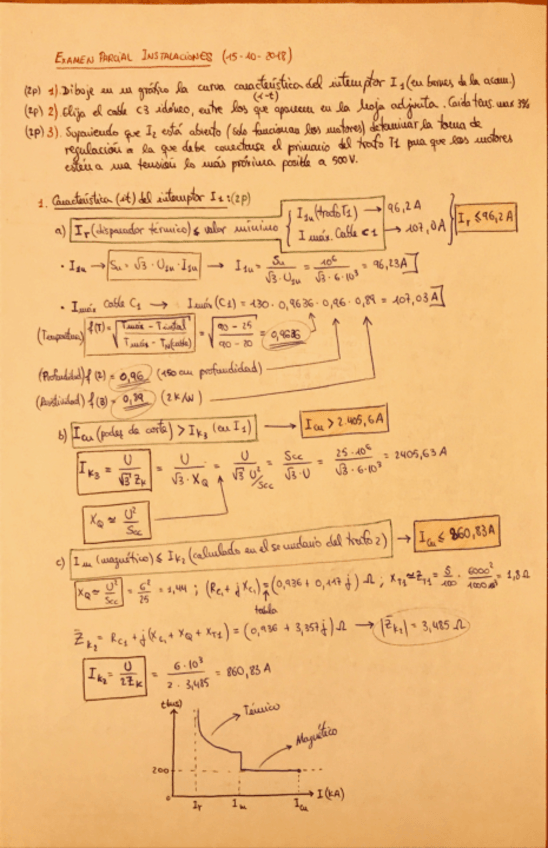 EXAMEN PARCIAL INSTALACIONES (15-10-2018)
(2p) 1). Dibuje en un gráfico la curva característica del interruptor I1 (en bornes de la acom.)
(i-t)
(2p) 2) Elija el cable C3 idóneo, entre los que aparecen en la hoja adjunta. Caída tens. max 3%
(2p) 3). Suponiendo que I2 está abierto (solo funcionan los motores) determinar la toma de
regulación a la que debe conectarse el primario del trafo T1 para que los motores
estén a una tensión lo más próxima posible a 500V.
1. Característica (it) del interruptor I1: (2p)
a) Ir (disparador térmico) ≤ valor mínimo { I1n (trafo T1) → 96,2A
I máx. Cable C1 → 107,0A } Ir ≤ 96,2 A
• I1n → Sn = √3 · U1n · I1n → I1n = Sn / √3·U1n = 10⁶ / √3·6·10³ = 96,23A
• Imáx Cable C1 → Imáx (C1) = 130 · 0,9636 · 0,96 · 0,89 = 107,03A
(Temperatura) f(T) = √ Tmáx - Treal / Tmáx - TN(cable) = √ 90 - 25 / 90 - 20 = 0,9636
(Profundidad) f(2) = 0,96 (150 cm profundidad)
(Resistividad) f(3) = 0,89 (2 K/W)
b) Icu (poder de corte) > Ik3 (en I1) → Icu > 2.405,6A
Ik3 = U / √3 Zk = U / √3 · XQ = U / √3 U²/Scc = Scc / √3·U = 25·10⁶ / √3·6·10³ = 2405,63A
XQ ≃ U² / Scc
c) Im (magnético) ≤ Ik2 (calculado en el secundario del trafo 2) → Icu ≤ 860,83A
XQ ≃ U² / Scc = 6² / 25 = 1,44 ; (RC1 + j XC1) = (0,936 + 0,117 j) Ω ; XT1 ≃ ZT1 = 5 / 100 · 6000² / 1000·10³ = 1,8 Ω
tabla
Z̄k2 = RC1 + j(XC1 + XQ + XT1) = (0,936 + 3,357j) Ω → |Z̄k2| = 3,485 Ω
Ik2 = U / 2Zk = 6·10³ / 2·3,485 = 860,83 A
t(ms)
Térmico
Magnético
200
0
Ir Im Icu I (KA)